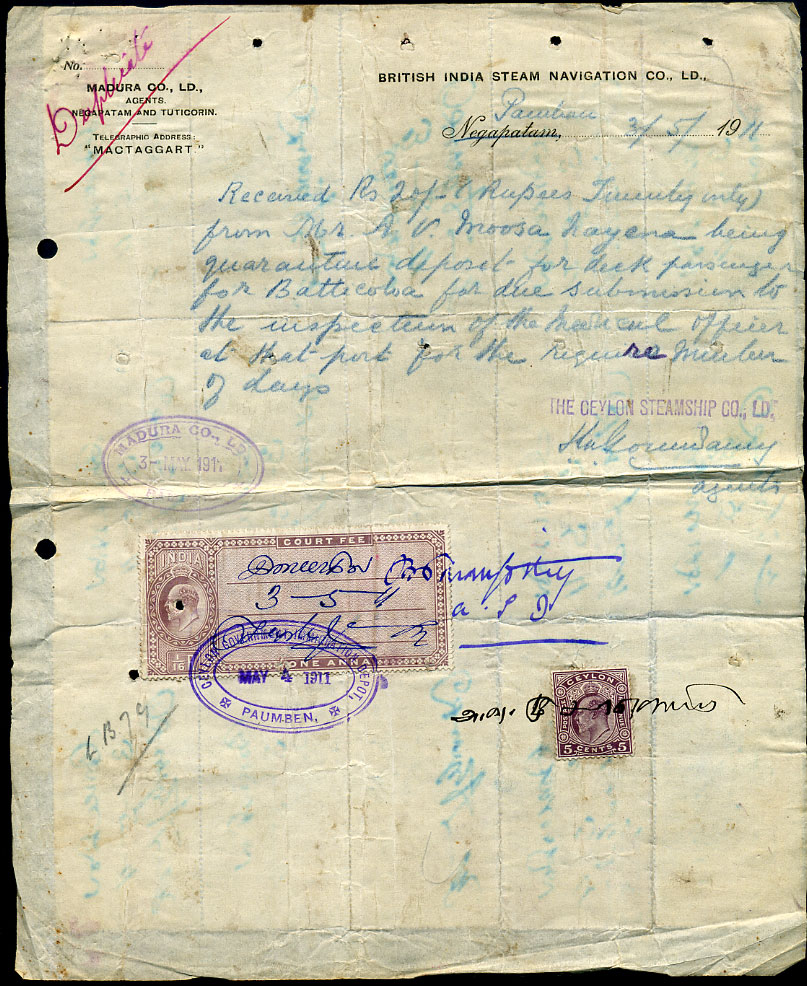 Duplicate
No.
MADURA CO., LD.,
AGENTS.
NEGAPATAM AND TUTICORIN.
TELEGRAPHIC ADDRESS:
"MACTAGGART"
BRITISH INDIA STEAM NAVIGATION CO., LD.,
Pamban
Negapatam, 3/5/ 1911
Received Rs 20/- (Rupees Twenty only)
from Mr. A. V. Moosa Nayena being
quarantine deposit for deck passenger
for Batticoloa for due submission to
the inspection of the Medical Officer
at that port for the require Number
of days
THE CEYLON STEAMSHIP CO., LD.,
agents
MADURA CO., LD.
3- MAY. 1911
COURT FEE
INDIA
3-5-11
1/16
ONE ANNA
CEYLON GOVERNMENT IMMIGRATION DEPOT,
MAY 4 1911
PAUMBEN,
CEYLON
POSTAGE
5 CENTS 5